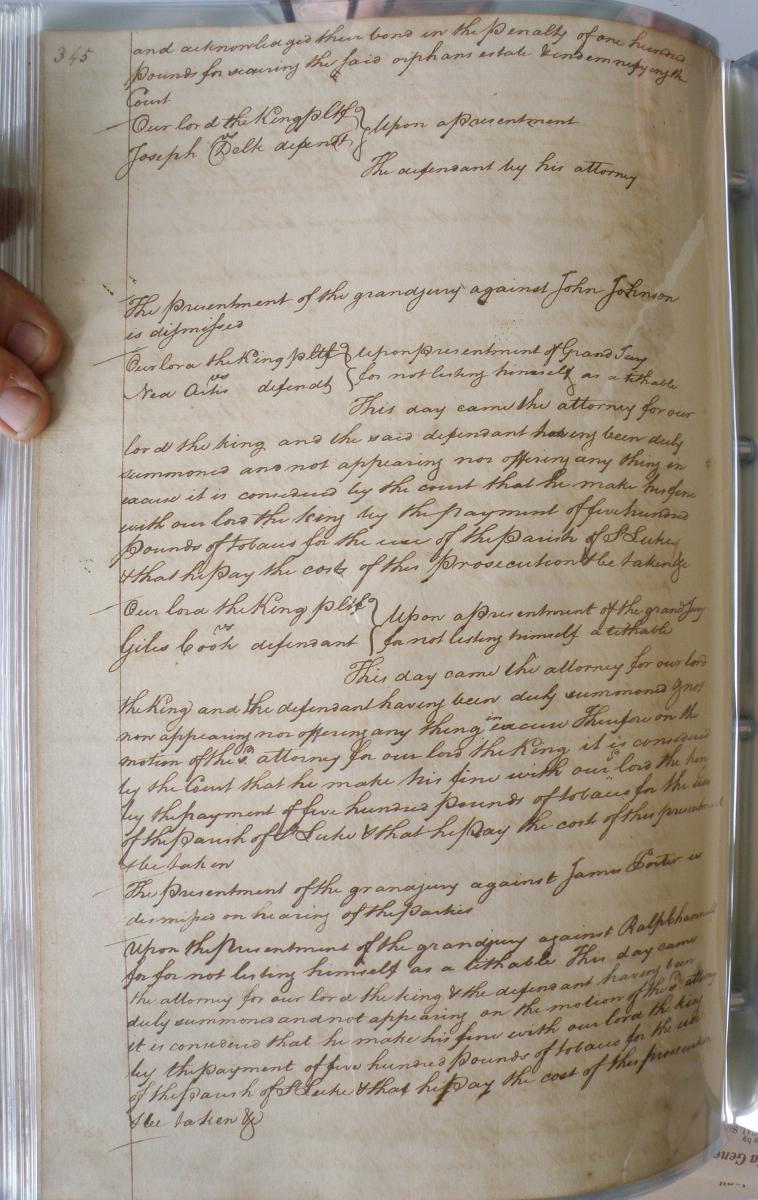 345
and acknowledged their bond in the penalty of one hundred
pounds for securing the said orphans estate & indemnifying the
Court
Our lord the King pltf } Upon a presentment
vs
Joseph Delk defendt
The defendant by his attorney
The presentment of the grandjury against John Johnson
is dismissed
Our lord the King pltf } upon presentment of Grand Jury
vs
Ned Artis defendt { for not listing himself as a tithable
This day came the attorney for our
lord the king and the said defendant having been duly
summoned and not appearing nor offering any thing in
excuse it is considered by the court that he make his fine
with our lord the king by the payment of five hundred
pounds of tobacco for the use of the parish of St Luke
& that he pay the costs of this prosecution & be taken &c
Our lord the King pltf } Upon a presentment of the grand Jury
vs
Giles Cook defendant { for not listing himself a tithable
This day came the attorney for our lord
the King and the defendant having been duly summond &
now appearing nor offering any thing in excuse Therefore on the
motion of the sd. attorney for our lord the King it is considered
by the Court that he make his fine with our sd. lord the
by the payment of five hundred pounds of tobacco for the use
of the parish of St Luke & that he pay the cost of this
& be taken
The presentment of the grandjury against James Porter is
dismissed on hearing of the parties
Upon the presentment of the grandjury against Ralph
for for not listing himself as a tithable This day came
the attorney for our lord the king & the defendant having been
duly summond and not appearing on the motion of the sd. attorney
it is considered that he make his fine with our lord the king
by the payment of five hundred pounds of tobacco for the use
of the parish of St Luke & that he pay the cost of this prosecution
& be taken &c